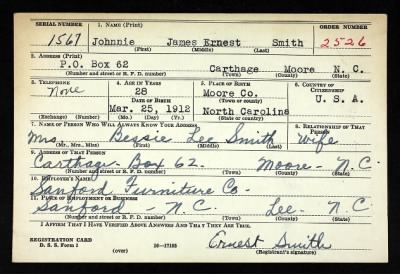 SERIAL NUMBER 1. NAME (Print) ORDER NUMBER
1567 Johnnie James Ernest Smith 2526
(First) (Middle) (Last)
2. ADDRESS (Print)
P.O. Box 62 Carthage Moore N. C.
(Number and street or R. F. D. number) (Town) (County) (State)
3. TELEPHONE 4. AGE IN YEARS 5. PLACE OF BIRTH 6. COUNTRY OF CITIZENSHIP
None 28 Moore Co. U. S. A.
DATE OF BIRTH (Town or county)
Mar. 25, 1912 North Carolina
(Exchange) (No.) (Mo.) (Day) (Yr.) (State or country)
7. NAME OF PERSON WHO WILL ALWAYS KNOW YOUR ADDRESS 8. RELATIONSHIP OF THAT PERSON
Mrs. Bessie Lee Smith wife
(Mr., Mrs., Miss) (First) (Middle) (Last)
9. ADDRESS OF THAT PERSON
Carthage - Box 62. Moore - N. C.
(Number and street or R. F. D. number) (Town) (County) (State)
10. EMPLOYER'S NAME
Sanford Furniture Co -
11. PLACE OF EMPLOYMENT OR BUSINESS
Sanford - N. C. Lee - N. C.
(Number and street or R. F. D. number) (Town) (County) (State)
I AFFIRM THAT I HAVE VERIFIED ABOVE ANSWERS AND THAT THEY ARE TRUE.
REGISTRATION CARD
D. S. S. Form 1 (over) 16—17105 Ernest Smith
(Registrant's signature)